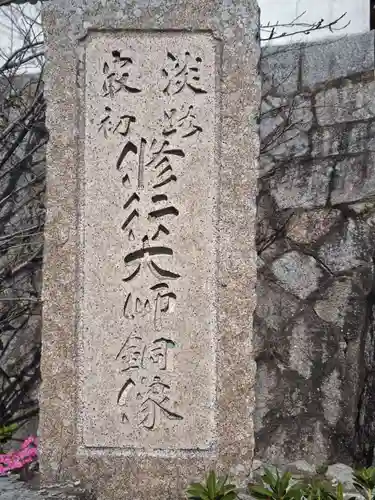 淡路
最初
修行大師銅像